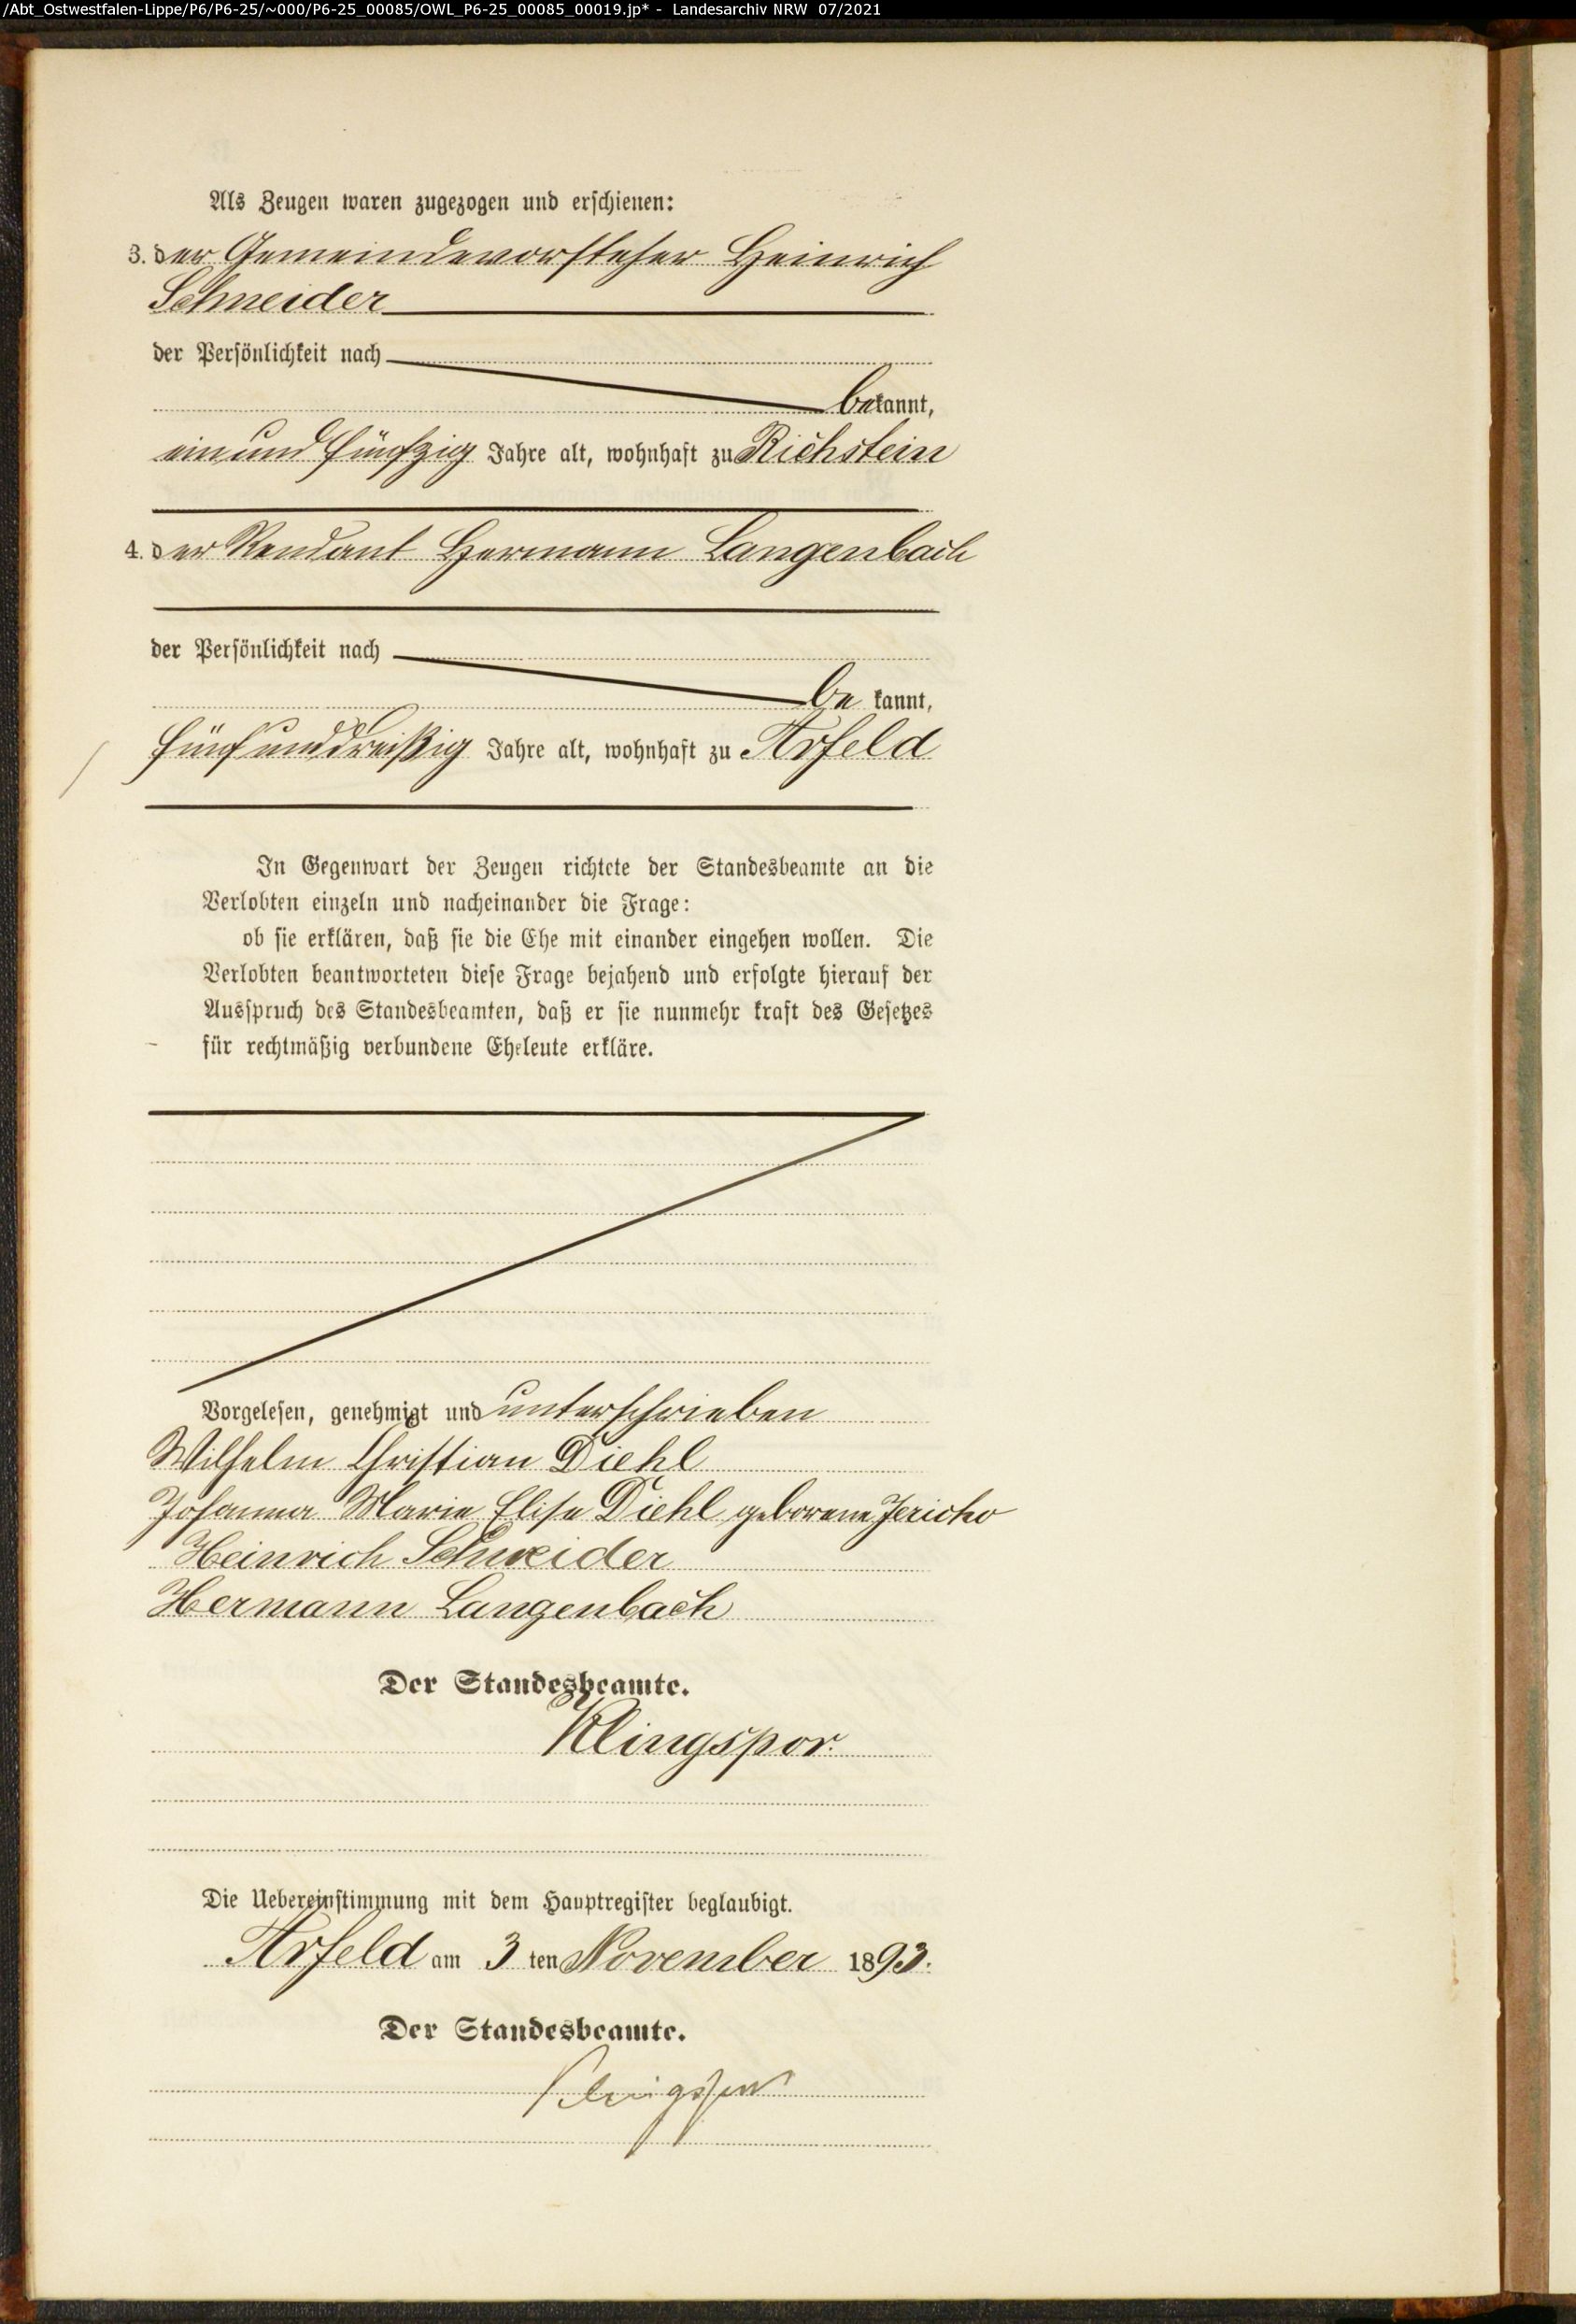 /Abt_Ostwestfalen-Lippe/P6/P6-25/~000/P6-25_00085/OWL_P6-25_00085_00019.jp* - Landesarchiv NRW 07/2021
Als Zeugen waren zugezogen und erschienen:
3. der Gemeindevorsteher Heinrich
Schneider
der Persönlichkeit nach
bekannt,
einundfünfzig Jahre alt, wohnhaft zu Richstein
4. der Rendant Hermann Langenbach
der Persönlichkeit nach
be kannt,
fünfunddreißig Jahre alt, wohnhaft zu Arfeld
In Gegenwart der Zeugen richtete der Standesbeamte an die
Verlobten einzeln und nacheinander die Frage:
ob sie erklären, daß sie die Ehe mit einander eingehen wollen. Die
Verlobten beantworteten diese Frage bejahend und erfolgte hierauf der
Ausspruch des Standesbeamten, daß er sie nunmehr kraft des Gesetzes
für rechtmäßig verbundene Eheleute erkläre.
Vorgelesen, genehmigt und unterschrieben
Wilhelm Christian Diehl
Johanna Marie Elise Diehl geborene Jericho
Heinrich Schneider
Hermann Langenbach
Der Standesbeamte.
Klingspor.
Die Uebereinstimmung mit dem Hauptregister beglaubigt.
Arfeld am 3 ten November 1893.
Der Standesbeamte.
Klingspor